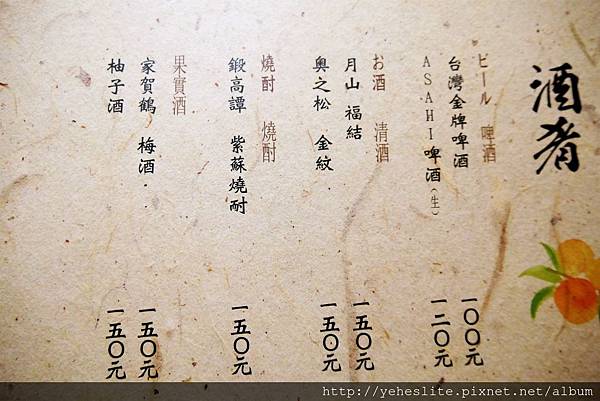 酒肴
ビール 啤酒
台灣金牌啤酒 一〇〇元
ASAHI啤酒(生) 一二〇元
お酒 清酒
月山 福結 一五〇元
奥之松 金紋 一五〇元
燒酎 燒酎
鍛高譚 紫蘇燒酎 一五〇元
果實酒
家賀鶴 梅酒 一五〇元
柚子酒 一五〇元
http://yeheslite.pixnet.net/album